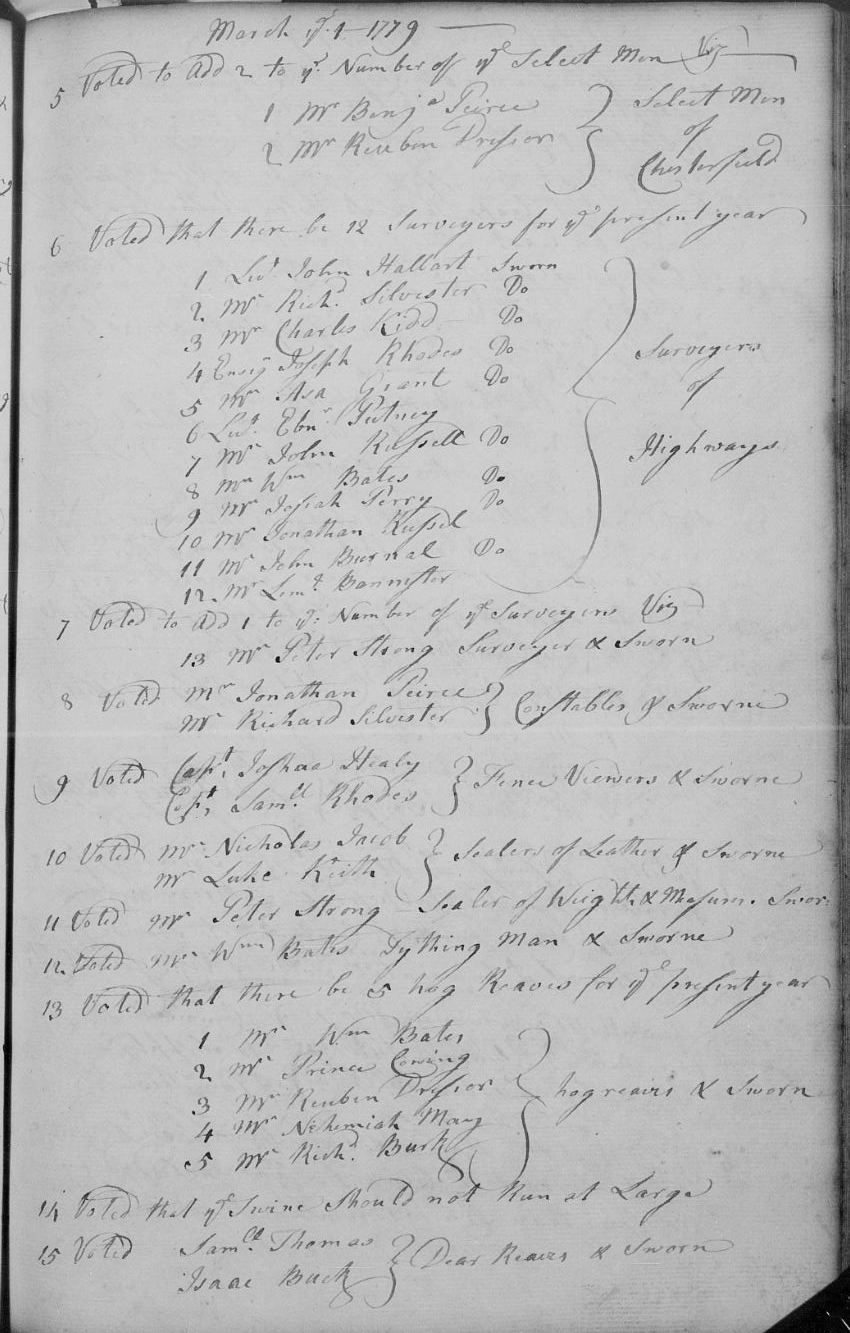 March ye. 1 - 1779
5 Voted to Add 2 to ye. Number of ye Select Men Viz
1 Mr Benja Peirce } Select Men
2 Mr Reuben Dressor } of Chesterfield
6 Voted that there be 12 Surveyers for ye present year
1 Leut. John Hallart Sworn
2 Mr Richd. Silvester Do
3 Mr Charles Kidd Do
4 Ensig Joseph Rhodes Do
5 Mr Asa Grant Do
6 Leut. Ebnr. Putney
7 Mr John Russell Do
8 Mr Wm Bates Do
9 Mr Josiah Perry Do
10 Mr Jonathan Russel
11 Mr John Burnal Do
12 Mr Leml. Bannister
} Surveyers of Highways
7 Voted to Add 1 to ye: Number of ye Surveyers Viz
13 Mr Peter Strong Surveyer & Sworn
8 Voted Mr Jonathan Peirce
Mr Richard Silvester } Constables & Sworne
9 Voted Capt. Joshua Healy
Capt. Samll Rhodes } Fence Viewers & Sworne
10 Voted Mr Nicholas Jacob
Mr Luke Keith } Sealers of Leather & Sworne
11 Voted Mr Peter Strong Sealer of Weight. & Measurs. Swor
12 Voted Mr Wm Bates Tything Man & Sworne
13 Voted that there be 5 hog Reaves for ye present year
1 Mr Wm Bates
2 Mr Prince Cowing
3 Mr Reuben Dressor
4 Mr Nehemiah May
5 Mr Richd. Burk
} hogreaves & Sworn
14 Voted that ye Swine Should not Run at Large
15 Voted Samll Thomas
Isaac Buck } Dear Reaves & Sworn